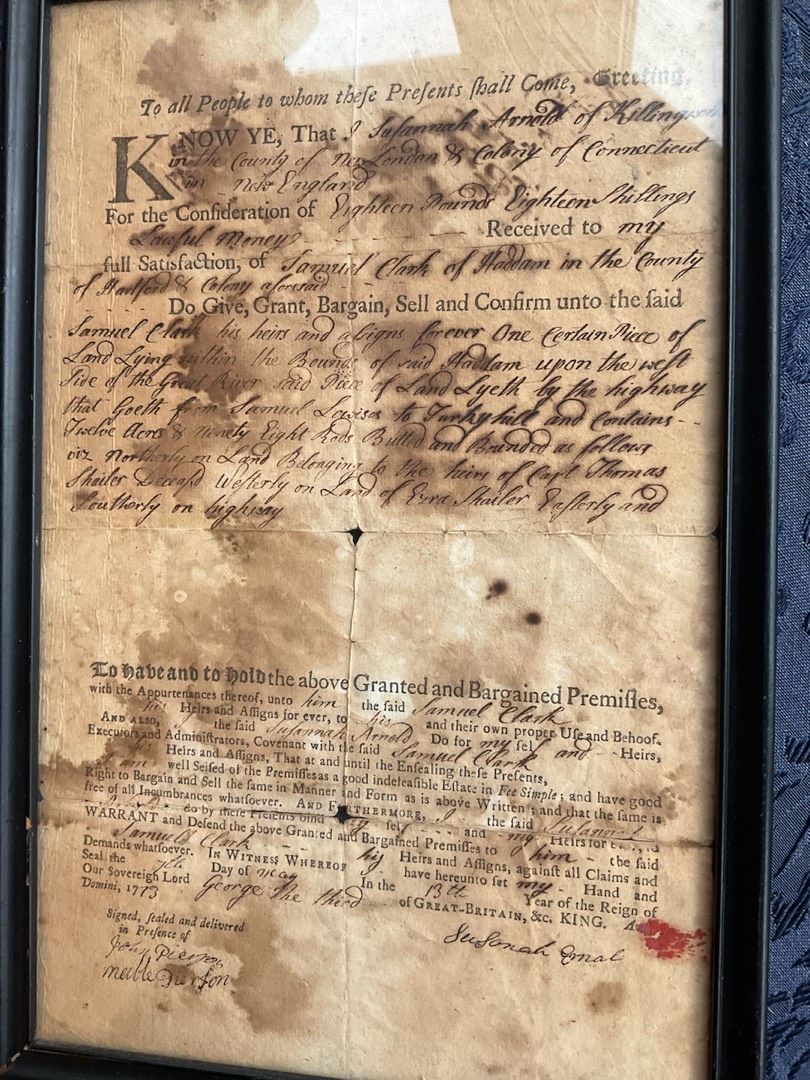 To all People to whom these Presents shall Come, Greeting,
KNOW YE, That I Susannah Arnold of Killingworth
in the County of New London & Colony of Connecticut
in New England
For the Consideration of Eighteen Pounds Eighteen Shillings
Lawful Money Received to my
full Satisfaction, of Samuel Clark of Haddam in the County
of Hartford & Colony aforesaid
Do Give, Grant, Bargain, Sell and Confirm unto the said
Samuel Clark his heirs and assigns forever One Certain Piece of
Land Lying within the Bounds of said Haddam upon the west
side of the Great River said Piece of Land Lyeth by the highway
that Goeth from Samuel Lewises to Turkyhill and Contains
Twelve Acres & Ninety Eight Rods Butted and Bounded as follows
viz Northerly on Land Belonging to the heirs of Capt Thomas
Shailer Deceasd Westerly on Land of Ezra Shailer Easterly and
Southerly on highway
To have and to hold the above Granted and Bargained Premisses,
with the Appurtenances thereof, unto him the said Samuel Clark
his Heirs and Assigns for ever, to his and their own proper Use and Behoof.
AND ALSO, I the said Susannah Arnold Do for my self and Heirs,
Executors and Administrators, Covenant with the said Samuel Clark
his Heirs and Assigns, That at and until the Ensealing these Presents,
I am well Seised of the Premisses as a good indefeasible Estate in Fee Simple; and have good
Right to Bargain and Sell the same in Manner and Form as is above Written; and that the same is
free of all Incumbrances whatsoever. AND FURTHERMORE, I the said Susannah
do by these Presents bind my self and my Heirs for ever, to
WARRANT and Defend the above Granted and Bargained Premisses to him the said
Samuel Clark his Heirs and Assigns, against all Claims and
Demands whatsoever. IN WITNESS WHEREOF I have hereunto set my Hand and
Seal the 7th Day of May In the 13th Year of the Reign of
Our Sovereign Lord George the third of GREAT-BRITAIN, &c. KING.
Domini, 1773
Signed, sealed and delivered
in Presence of
John Pierson
Susonah Ernal
Pierson